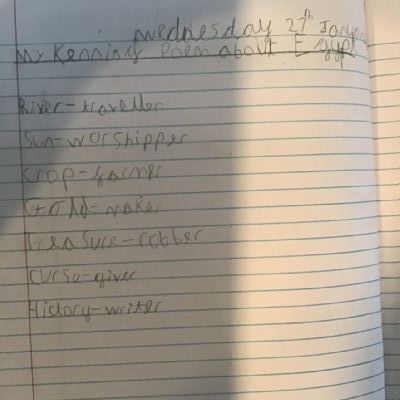 Wednesday 27th January
My Kenning Poem about Egypt
River-traveller
Sun-worshipper
Crop-farmer
Gold-maker
Treasure-robber
Curse-giver
History-writer